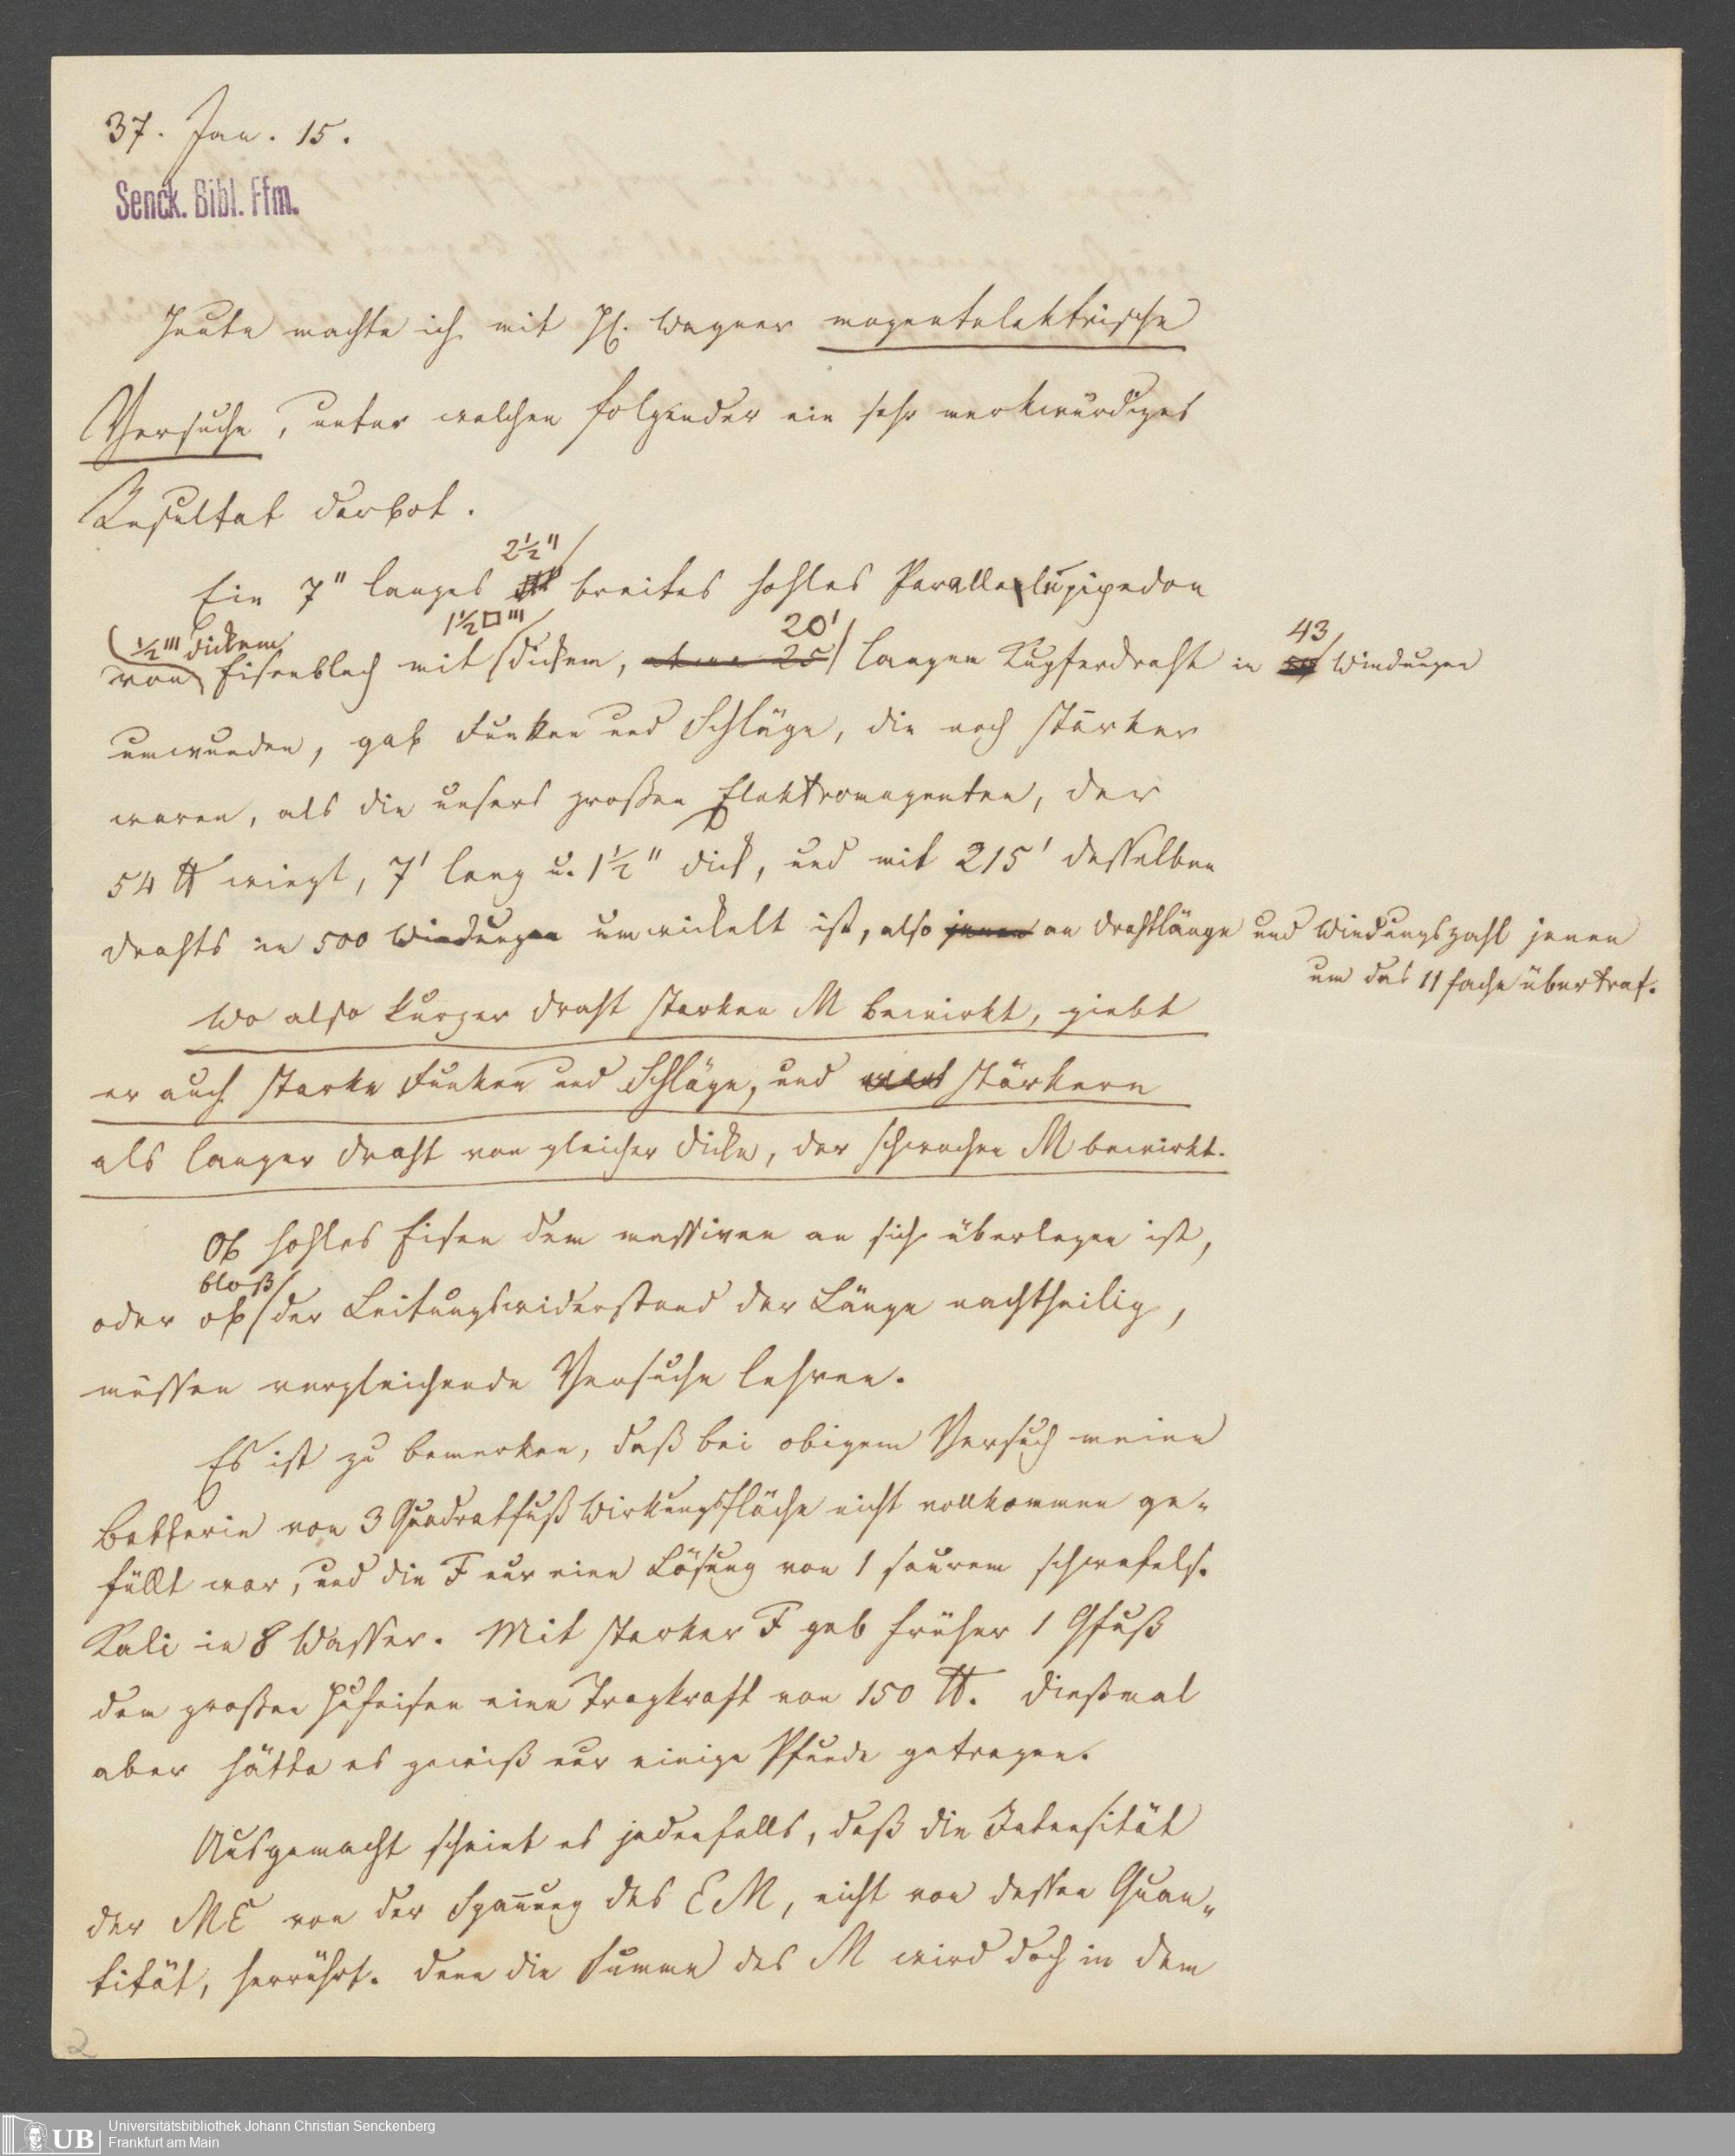 37. Jan. 15.
Senck. Bibl. Ffm.
Heute machte ich mit H. Wagner magnetelektrische
Versuche, unter welchen folgender ein sehr merkwürdiges
Resultat darbot.
2½"
Ein 7" langes breites hohles Parallelepipedon
½''' dickem 1½□''' 20' 43
von Eisenblech mit dickem, etwa 25 langen Kupferdraht in Windungen
umwunden, gab Funken und Schläge, die noch stärker
waren, als die unsers großen Elektromagneten, der
54 ℔ wiegt, 7' lang u. 1½" dick, und mit 215' desselben
Drahts in 500 Windungen umwickelt ist, also jenen an Drahtlänge und Windungszahl jenen
um das 11 fache übertraf.
Wo also kurzer Draht starken M bewirkt, giebt
er auch starke Funken und Schläge, und stärkere
als langer Draht von gleicher Dicke, der schwachen M bewirkt.
Ob hohles Eisen dem massiven an sich überlegen ist,
bloß
oder ob der Leitungswiderstand der Länge nachtheilig,
müssen vergleichende Versuche lehren.
Es ist zu bemerken, daß bei obigem Versuch meine
Batterie von 3 Quadratfuß Wirkungsfläche nicht vollkommen ge-
füllt war, und die F nur eine Lösung von 1 saurem schwefels.
Kali in 8 Wasser. Mit starker F gab früher 1 Qfuß
dem großen Hufeisen eine Tragkraft von 150 ℔. Dießmal
aber hätte es gewiß nur einige Pfunde getragen.
Ausgemacht scheint es jedenfalls, daß die Intensität
der ME von der Spannung des EM, nicht von dessen Quan-
tität, herrührt. Denn die Summe des M wird doch in dem
2
UB
Universitätsbibliothek Johann Christian Senckenberg
Frankfurt am Main